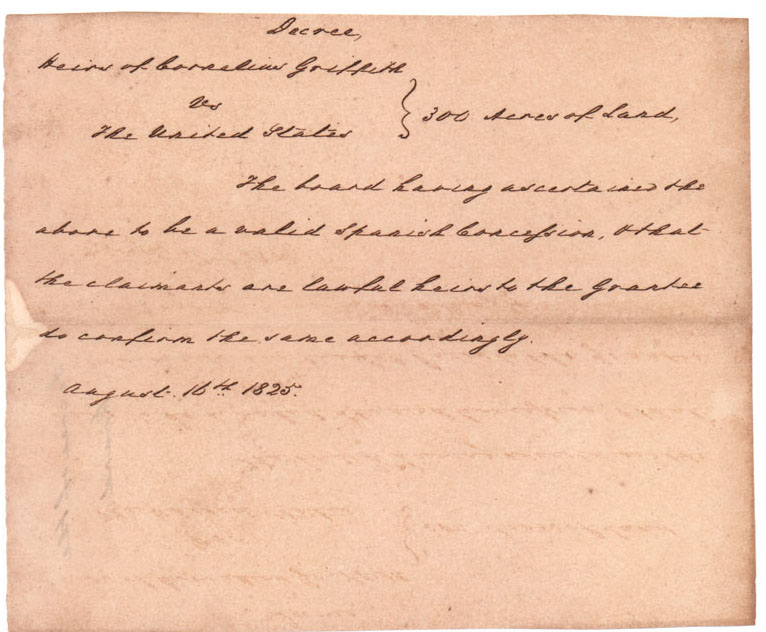 Decree,
Heirs of Cornelius Griffith
Vs } 300 Acres of Land,
The United States
The board having ascertained the
above to be a valid Spanish Concession, & that
the claimants are lawful heirs to the Grantee
do confirm the same accordingly.
August 16th 1825.